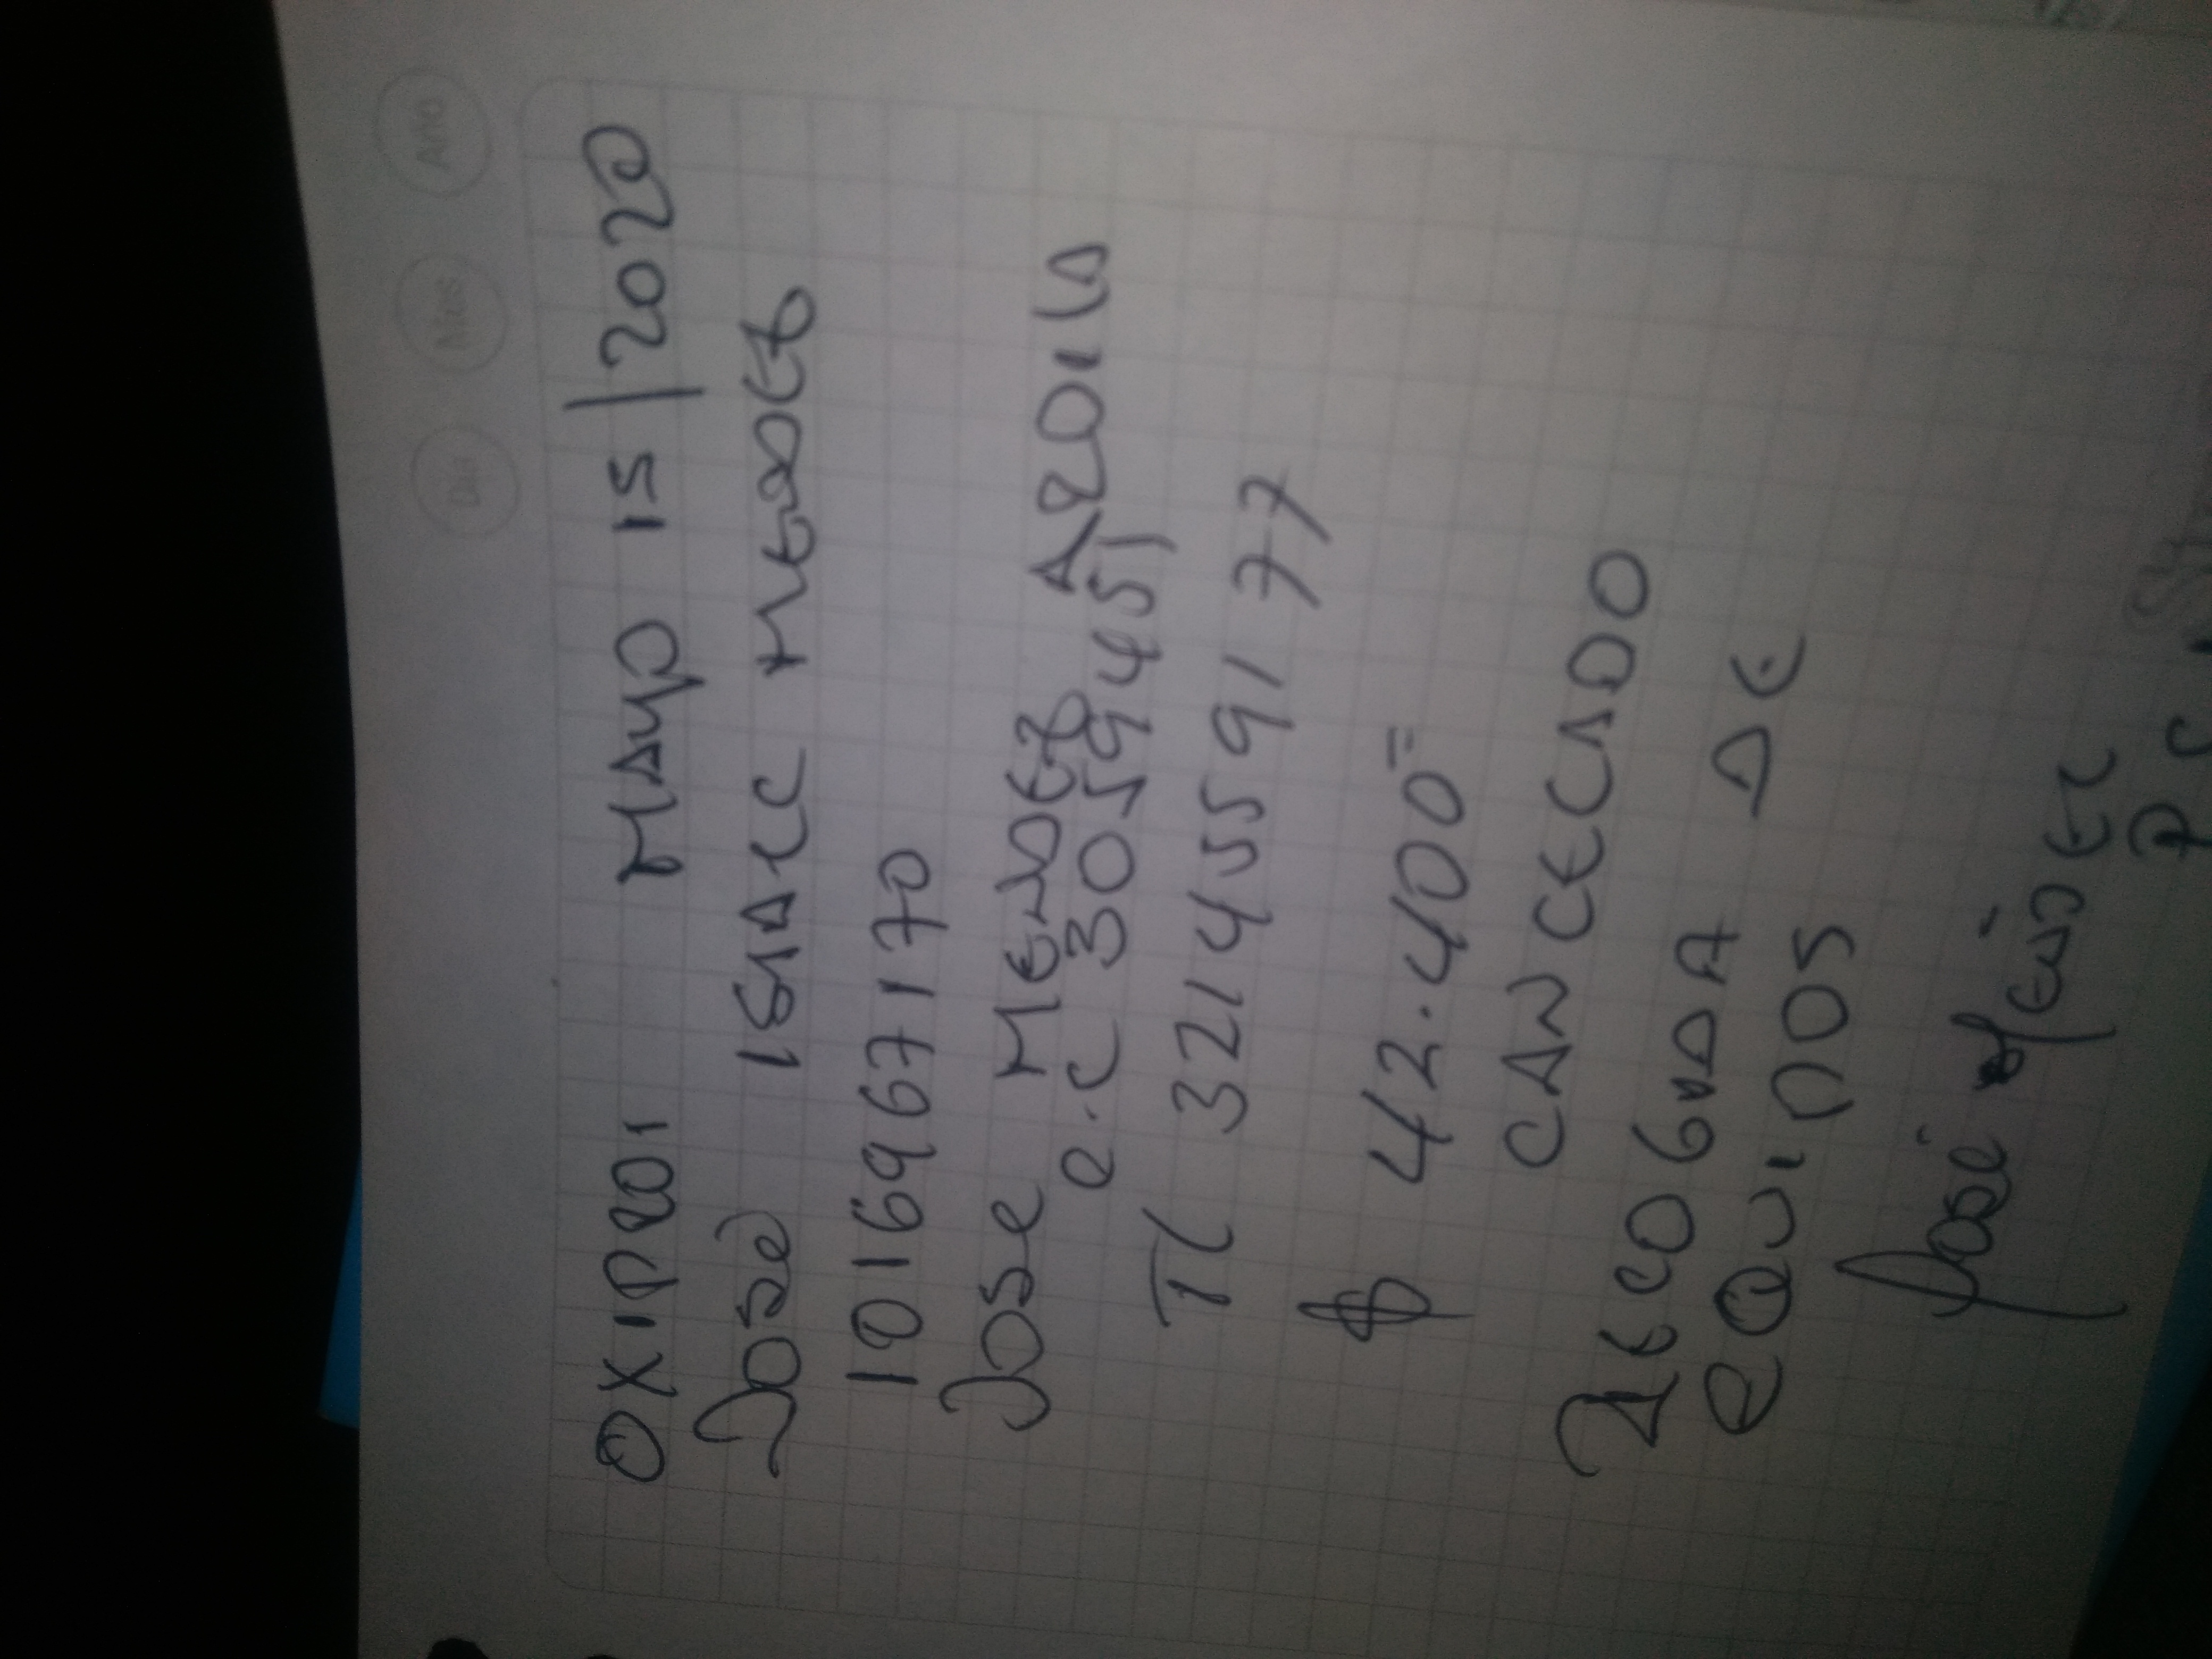 Día Mes Año
OXIPRO1 MAYO 15/2020
José ISAAC MENDEZ
1016967170
José MENDEZ
C.C 3059451
TL 3214559177
$ 42.400=
CANCELADO
RECOGIDA DE
EQUIPOS
José Mendez